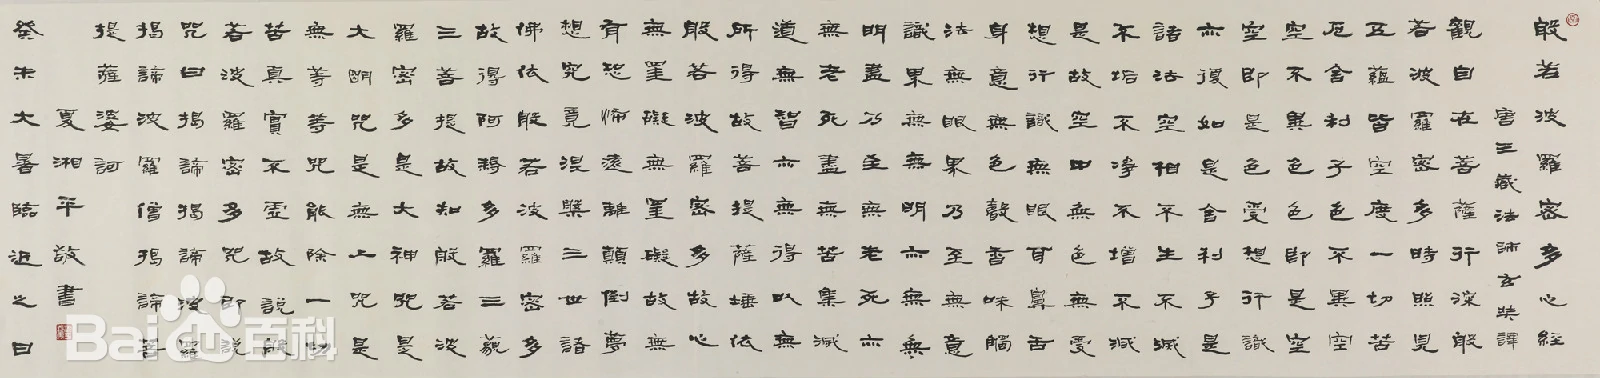 般若波羅密多心經
唐三藏法師玄奘譯
觀自在菩薩行深般
若波羅密多時照見
五蘊皆空度一切苦
厄舍利子色不異空
空不異色色即是空
空即是色受想行識
亦復如是舍利子是
諸法空相不生不滅
不垢不淨不增不減
是故空中無色無受
想行識無眼耳鼻舌
身意無色聲香味觸
法無眼界乃至無意
識界無無明亦無無
明盡乃至無老死亦
無老死盡無苦集滅
道無智亦無得以無
所得故菩提薩埵依
般若波羅密多故心
無罣礙無罣礙故無
有恐怖遠離顛倒夢
想究竟涅槃三世諸
佛依般若波羅密多
故得阿耨多羅三藐
三菩提故知般若波
羅密多是大神咒是
大明咒是無上咒是
無等等咒能除一切
苦真實不虛故說般
若波羅密多咒即說
咒曰揭諦揭諦波羅
揭諦波羅僧揭諦菩
提薩婆訶
夏湘平敬書
癸未大暑臨近之日
Bai百科